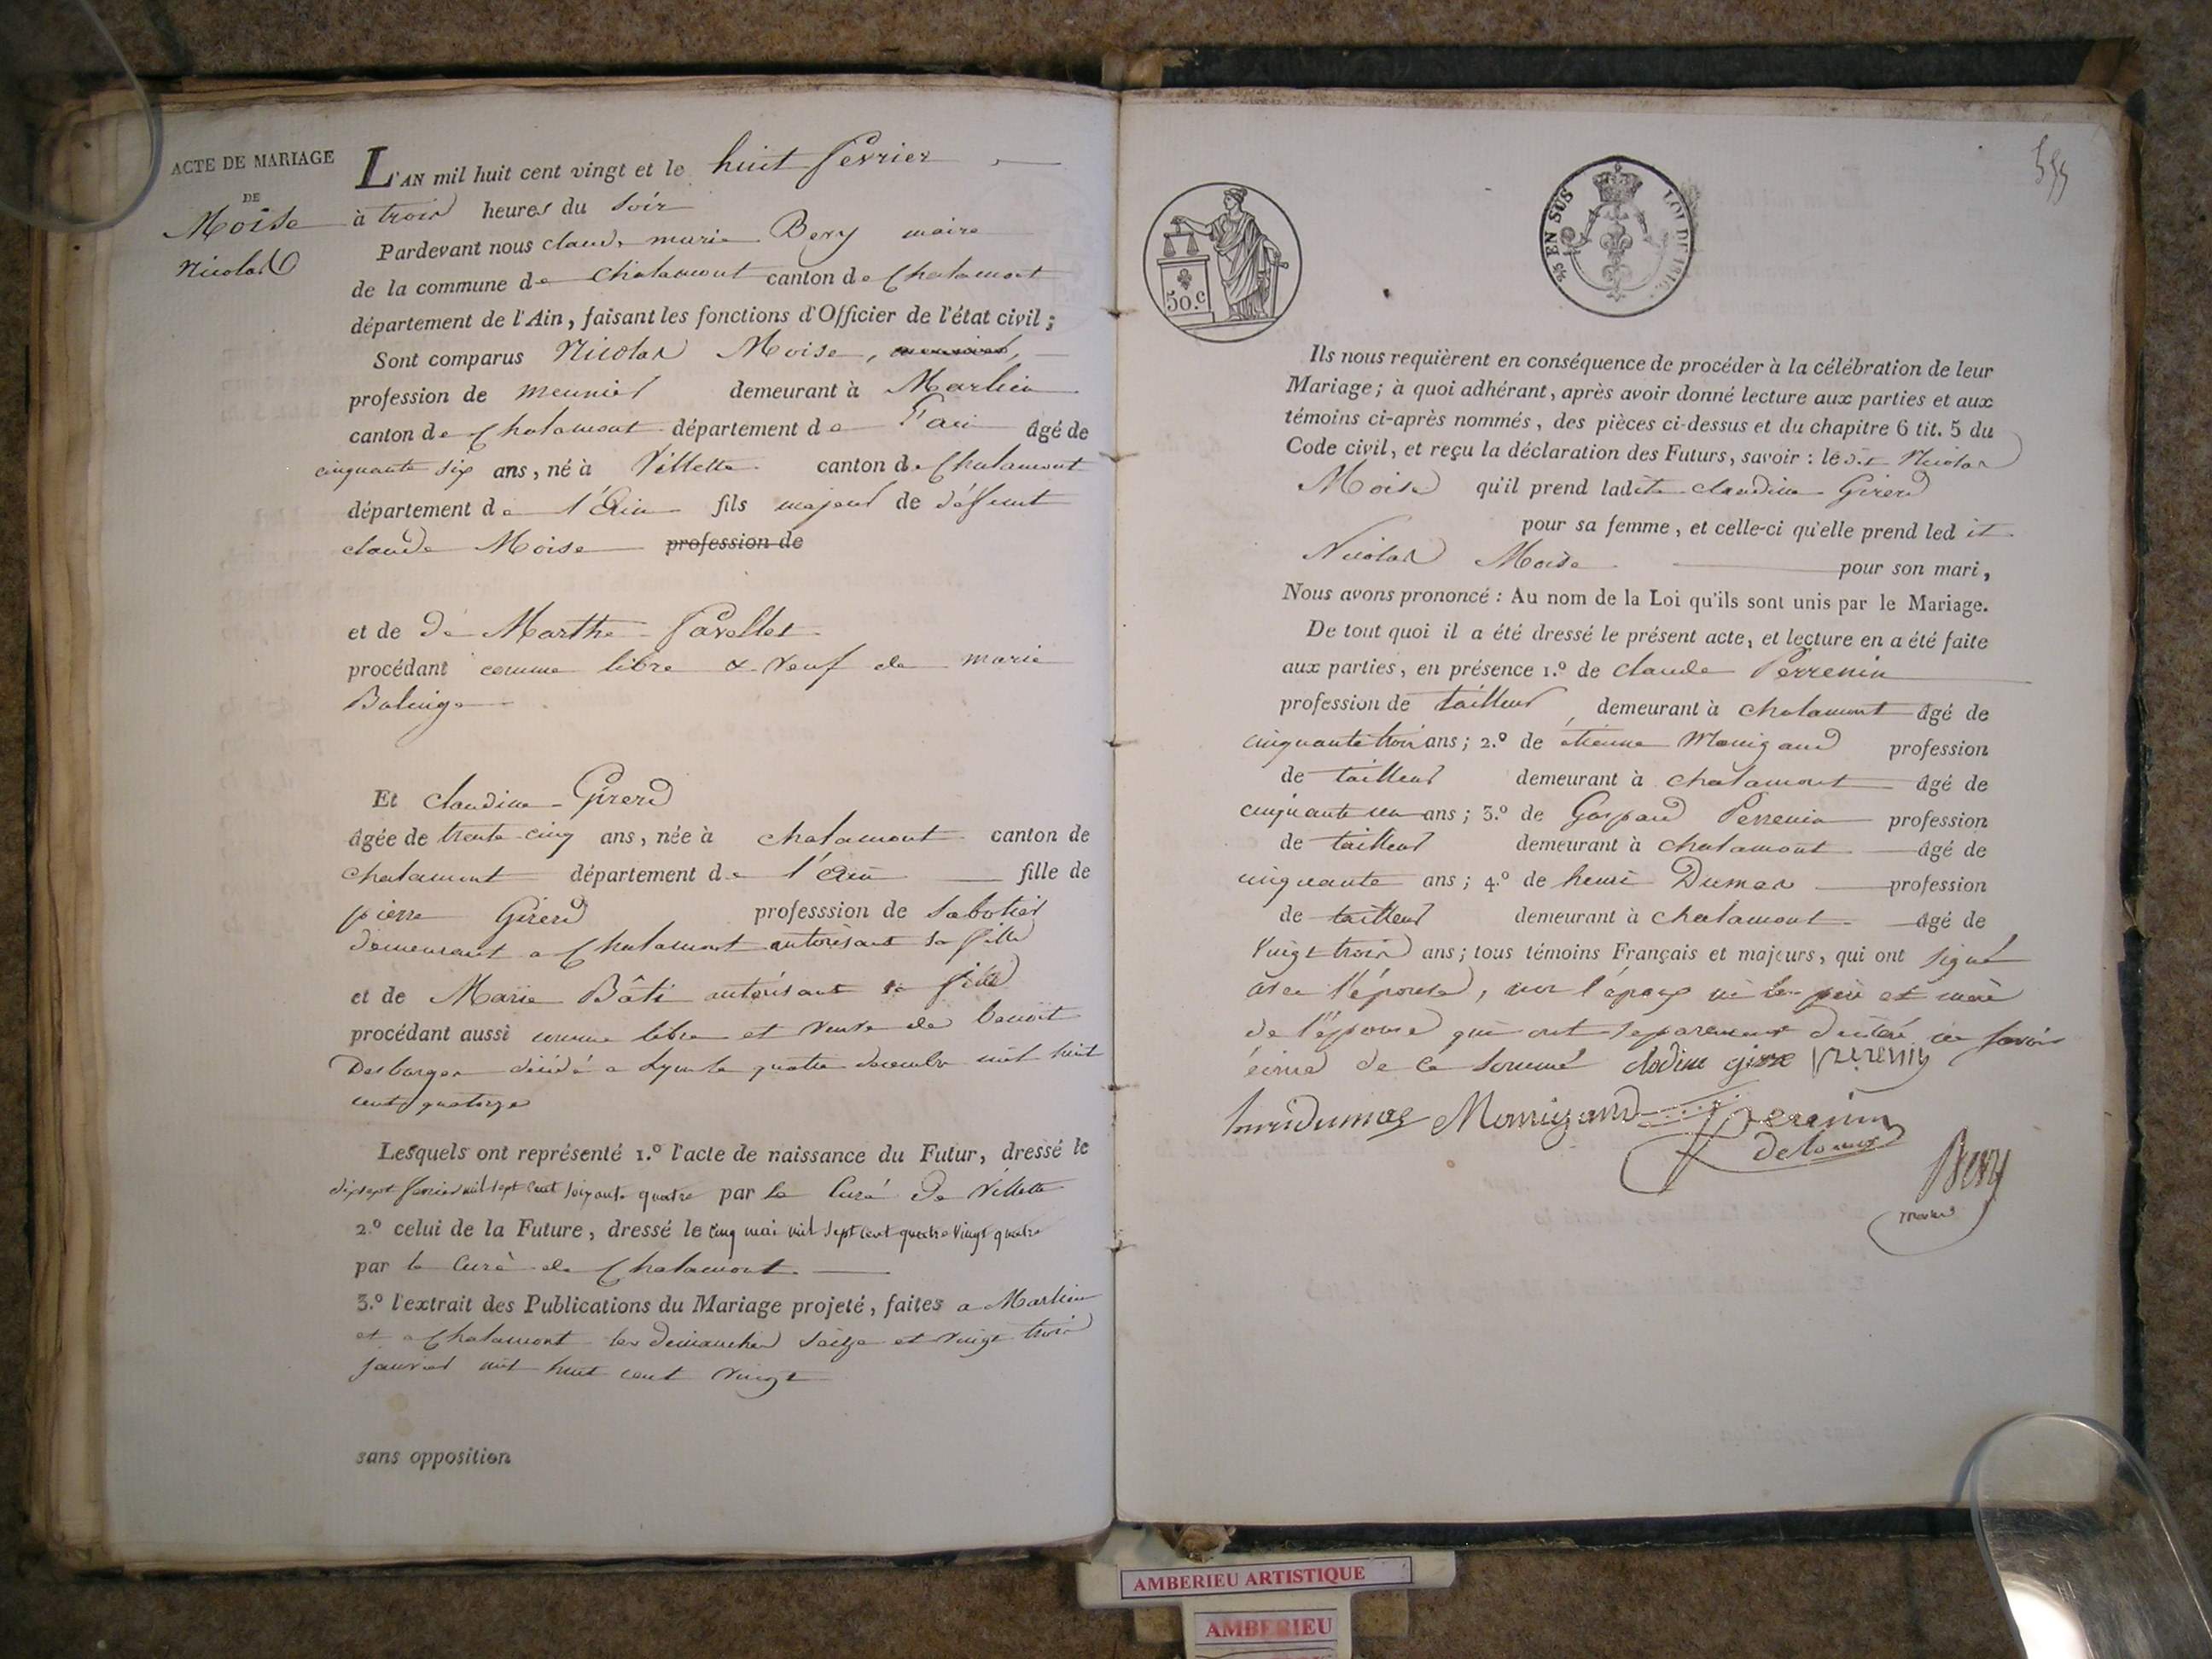 ACTE DE MARIAGE
DE
Moise
Nicolas
L'AN mil huit cent vingt et le huit fevrier
à trois heures du soir
Pardevant nous claude marie Bery maire
de la commune de Chalamont canton de Chalamont
département de l'Ain, faisant les fonctions d'Officier de l'état civil ;
Sont comparus Nicolas Moise,
profession de meunier demeurant à Marlieu
canton de Chalamont département de l'ain âgé de
cinquante six ans, né à Villette canton de Chalamont
département de l'Ain fils majeur de défunt
claude Moise profession de
et de de Marthe Pavellet
procédant comme libre & veuf de marie
Balinge
Et claudine Girerd
âgée de trente cinq ans, née à chalamont canton de
chalamont département de l'Ain fille de
pierre Girerd professsion de sabotier
demeurant a Chalamont autorisant sa fille
et de Marie Bâti autorisant sa fille
procédant aussi comme libre et veuve de benoit
Desbarges décédé a Lyon le quatre decembre mil huit
cent quatorze
Lesquels ont représenté 1.º l'acte de naissance du Futur, dressé le
dix sept fevrier mil sept cent soixante quatre par le Curé De Villette
2.º celui de la Future, dressé le cinq mai mil sept cent quatre vingt quatre
par le Curé de Chalamont
3.º l'extrait des Publications du Mariage projeté, faites a Marlieu
et a Chalamont les dimanches seize et vingt trois
janvier mil huit cent vingt
sans opposition
EN SUS
LOI DE 1816
50.c
Ils nous requièrent en conséquence de procéder à la célébration de leur
Mariage ; à quoi adhérant, après avoir donné lecture aux parties et aux
témoins ci-après nommés, des pièces ci-dessus et du chapitre 6 tit. 5 du
Code civil, et reçu la déclaration des Futurs, savoir : ledit Nicolas
Moise qu'il prend ladite claudine Girerd
pour sa femme, et celle-ci qu'elle prend ledit
Nicolas Moise pour son mari,
Nous avons prononcé : Au nom de la Loi qu'ils sont unis par le Mariage.
De tout quoi il a été dressé le présent acte, et lecture en a été faite
aux parties, en présence 1.º de claude Perrenin
profession de tailleur demeurant à chalamont âgé de
cinquante trois ans ; 2.º de etienne Monigand profession
de tailleur demeurant à chalamont âgé de
cinquante un ans ; 3.º de Gaspard Perrenin profession
de tailleur demeurant à chalamont âgé de
cinquante ans ; 4.º de henri Dumas profession
de tailleur demeurant à chalamont âgé de
vingt trois ans ; tous témoins Français et majeurs, qui ont signé
avec l'épouse, non l'époux ni les père et mère
de l'épouse qui ont separement declaré ne savoir
écrire de ce sommé clodine girre perrenin
henri dumas Monigand Perrenin
Bery
maire
AMBERIEU ARTISTIQUE
AMBERIEU